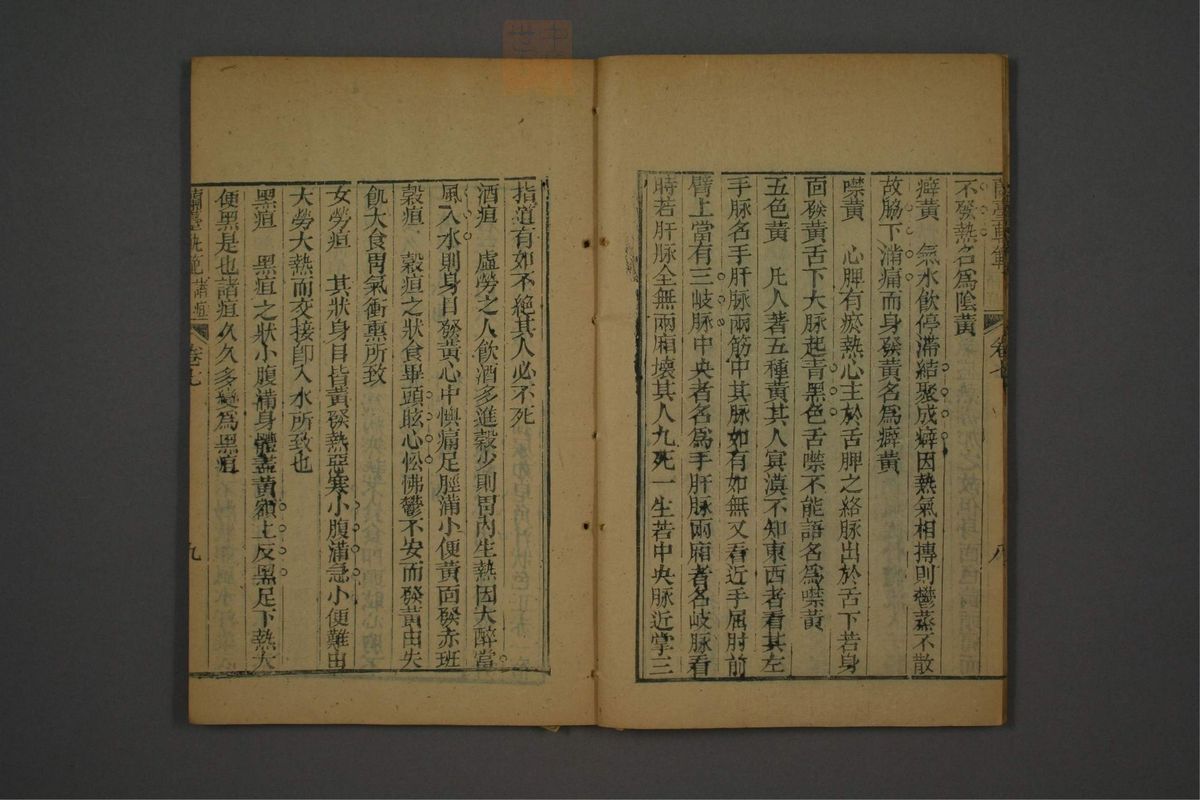 蘭臺軌範 卷七 八
不發熱名爲陰黃
癖黃 氣水飲停滯結聚成癖因熱氣相搏則鬱蒸不散
故脇下滿痛而身發黃名爲癖黃
噤黃 心脾有瘀熱心主於舌脾之絡脉出於舌下若身
面發黃舌下大脉起青黑色舌噤不能語名爲噤黃
五色黃 凡人著五種黃其人冥漠不知東西者看其左
手脉名手肝脉兩筋中其脉如有如無又看近手屈肘前
臂上當有三岐脉中央者名爲手肝脉兩廂者名岐脉看
時若肝脉全無兩廂壞其人九死一生若中央脉近掌三
指道有如不絕其人必不死
酒疸 虛勞之人飲酒多進穀少則胃內生熱因大醉當
風入水則身目發黃心中懊痛足脛滿小便黃面發赤班
穀疸 穀疸之狀食畢頭眩心忪怫鬱不安而發黃由失
飢大食胃氣衝熏所致
女勞疸 其狀身目皆黃發熱惡寒小腹滿急小便難由
大勞大熱而交接卽入水所致也
黑疸 黑疸之狀小腹滿身體盡黃額上反黑足下熱大
便黑是也諸疸久久多變爲黑疸
蘭臺軌範 諸疸 卷七 九